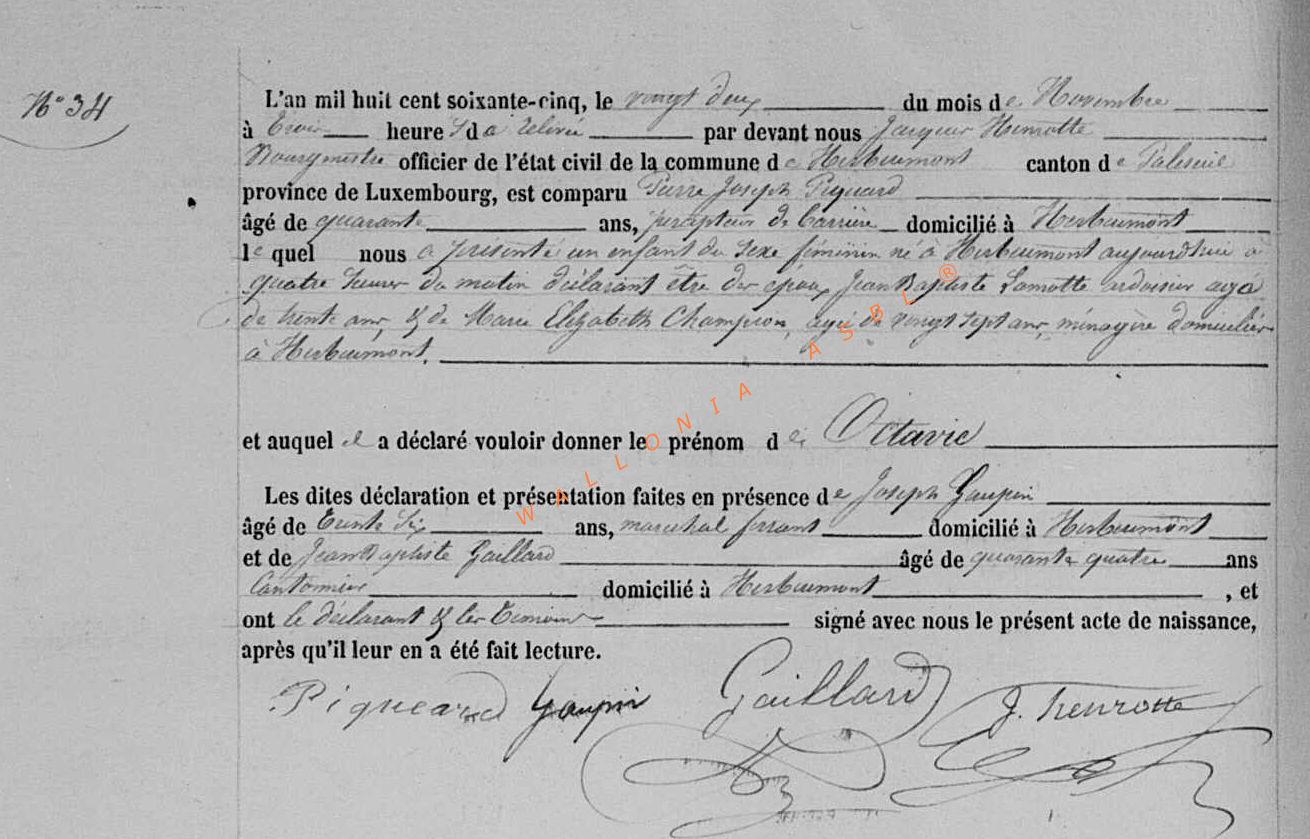 N° 34
L'an mil huit cent soixante-cinq, le vingt deux du mois de Novembre
à trois heure s de relevée par devant nous Jacques Henrotte
Bourgmestre officier de l'état civil de la commune de Herbeumont canton de Paliseul
province de Luxembourg, est comparu Pierre Joseph Piqueard
âgé de quarante ans, de Carrière domicilié à Herbeumont
le quel nous a présenté un enfant du sexe féminin né à Herbeumont aujourd'hui à
quatre heures du matin déclarant être des époux Jean Baptiste Lamotte ardoisier agé
de trente ans, & de Marie Elizabeth Champion, agée de vingt sept ans, ménagère domiciliés
à Herbeumont.
et auquel il a déclaré vouloir donner le prénom de Octavie
Les dites déclaration et présentation faites en présence de Joseph Gaupin
âgé de trente six ans, maréchal ferrant domicilié à Herbeumont
et de Jean Baptiste Gaillard âgé de quarante quatre ans
Cantonnier domicilié à Herbeumont , et
ont le déclarant & les témoins signé avec nous le présent acte de naissance,
après qu'il leur en a été fait lecture.
Piqueard Gaupin Gaillard J. Henrotte
WALLONIA ASBL ®